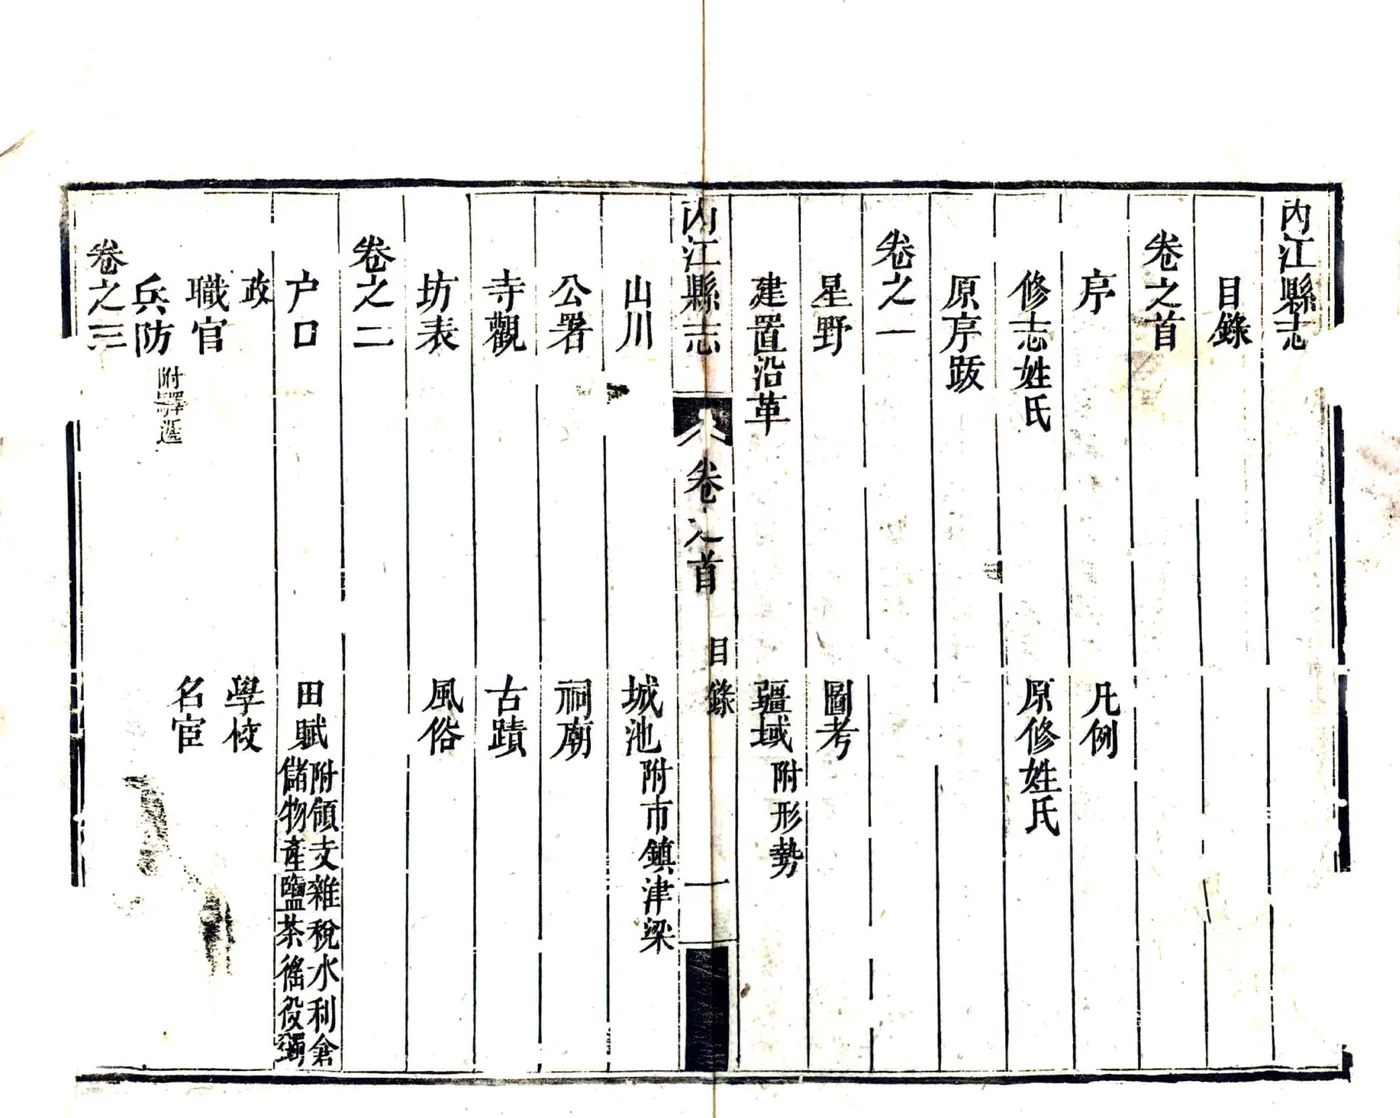 內江縣志
目錄
卷之首
序 凡例
修志姓氏 原修姓氏
原序跋
卷之一
星野 圖考
建置沿革 疆域附形勢
內江縣志 卷之首 目錄 一
山川 城池附市鎮津梁
公署 祠廟
寺觀 古蹟
坊表 風俗
卷之二
户口 田賦附領支雜稅水利倉儲物產鹽茶徭役
政 學校
職官 名宦
兵防附驛遞
卷之三